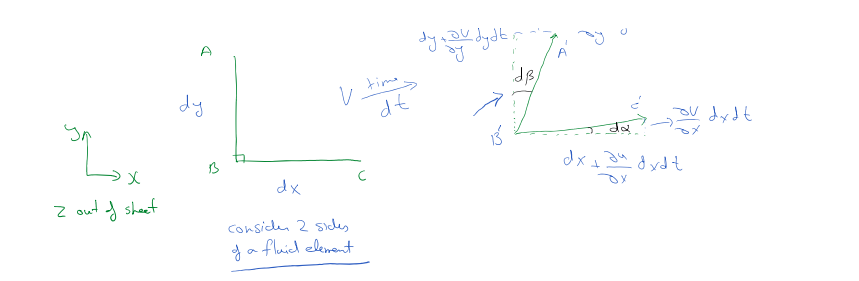 A
dy
B
C
dx
y
x
z out of sheet
consider 2 sides
of a fluid element
V time
dt
dy + ∂V/∂y dydt
∂y
A'
dβ
B'
C'
dα
∂V/∂x dxdt
dx + ∂u/∂x dxdt